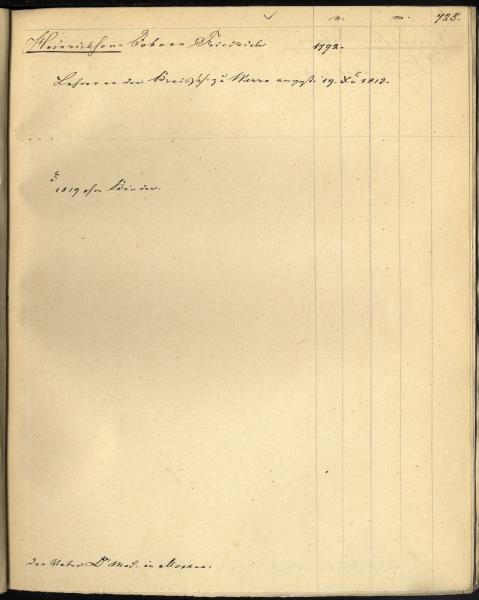 n. m. 725.
Heinrichsen Johann Friedrich 1792.
Lehrer an der Kreissch. zu Werro angest. 19. 1813.
1819 ohne Kinder.
der Vater Dr Med. in Moskau.